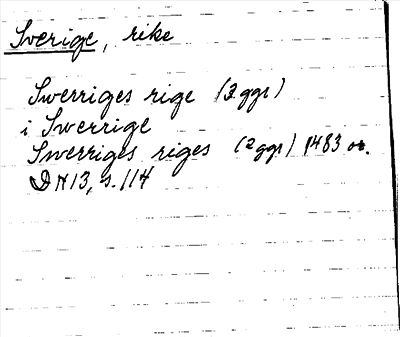 Sverige, rike
Swerriges rige (2 ggr)
i Swerrige
Swerriges riges (2 ggr) 1483 or.
DN 13, s. 114